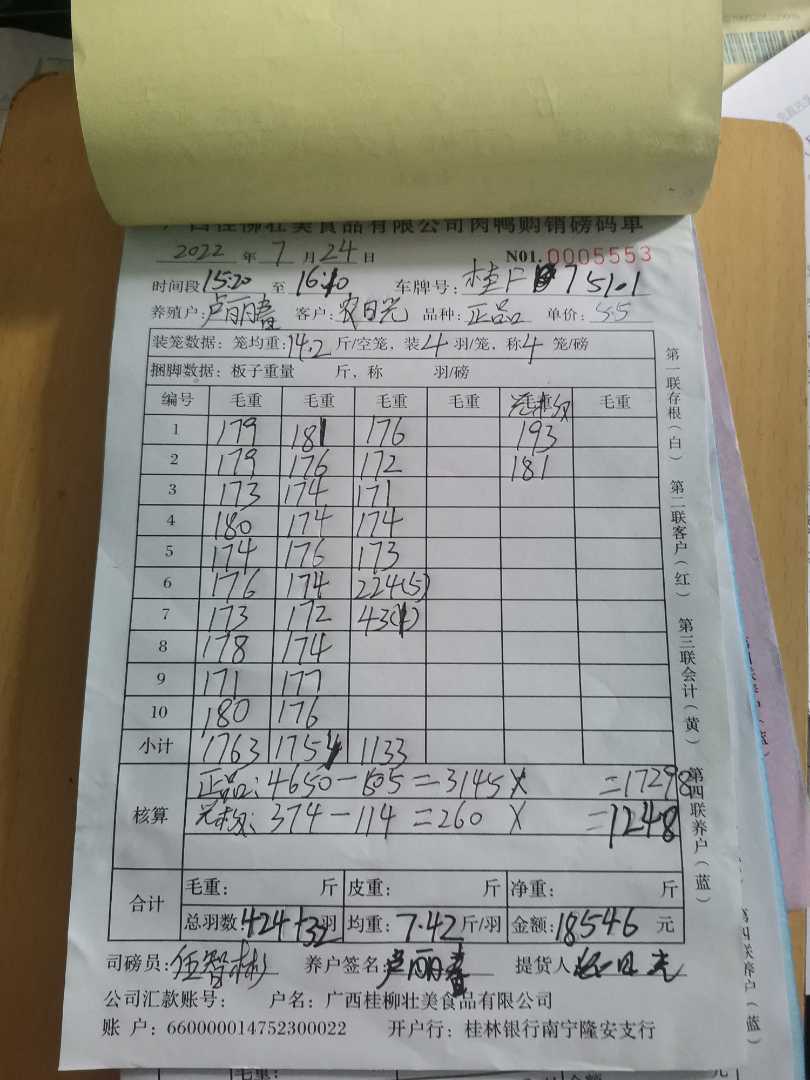 广西桂柳壮美食品有限公司肉鸭购销磅码单
2022 年 7 月 24 日 N01. 0005553
时间段 15:20 至 16:10 车牌号: 桂F 751.1
养殖户: 卢丽春 客户: 农日光 品种: 正品 单价: 5.5
装笼数据: 笼均重: 14.2 斤/空笼, 装 4 羽/笼, 称 4 笼/磅
捆脚数据: 板子重量 斤, 称 羽/磅
编号 毛重 毛重 毛重 毛重 毛重 毛重
1 179 181 176 193
2 179 176 172 181
3 173 174 171
4 180 174 174
5 174 176 173
6 176 174 224(5)
7 173 172 43(1)
8 178 174
9 171 177
10 180 176
小计 1763 1754 1133
核算
正品: 4650-1505=3145× =17298
374-114=260 × =1248
合计
毛重: 斤 皮重: 斤 净重: 斤
总羽数 424+32 羽 均重: 7.42 斤/羽 金额: 18546 元
司磅员: 伍智彬 养户签名: 卢丽春 提货人
公司汇款账号: 户名: 广西桂柳壮美食品有限公司
账 户: 660000014752300022 开户行: 桂林银行南宁隆安支行
第一联存根(白)
第二联客户(红)
第三联会计(黄)
第四联养户(蓝)
第四联养户(蓝)
毛重: